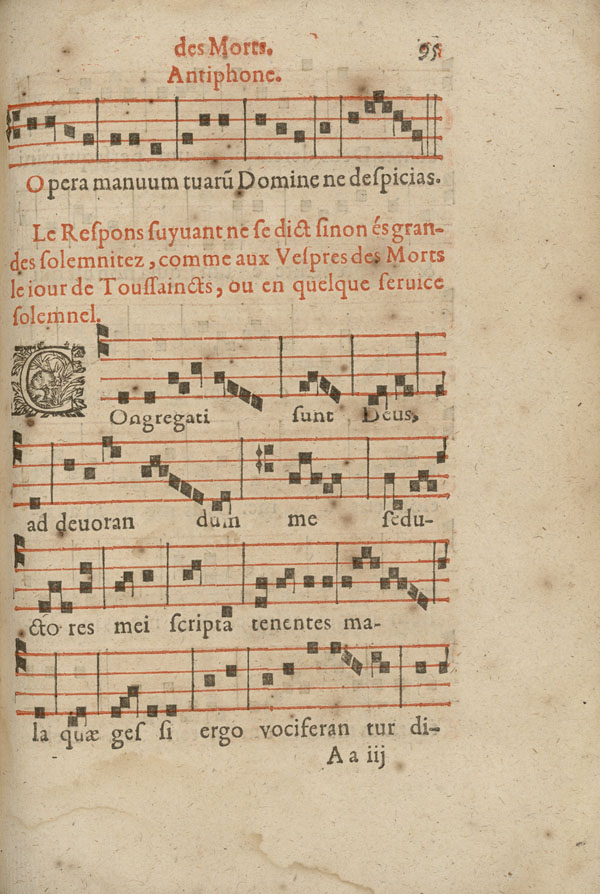 des Morts. 95
Antiphone.
Opera manuum tuarũ Domine ne deſpicias.
Le Reſpons ſuyuant ne ſe dict ſinon és gran-
des ſolemnitez, comme aux Veſpres des Morts
le iour de Touſſaincts, ou en quelque ſeruice
ſolemnel.
COngregati ſunt Deus,
ad deuoran dum me ſedu-
cto res mei ſcripta tenentes ma-
la quæ geſ ſi ergo vociferan tur di-
A a iij